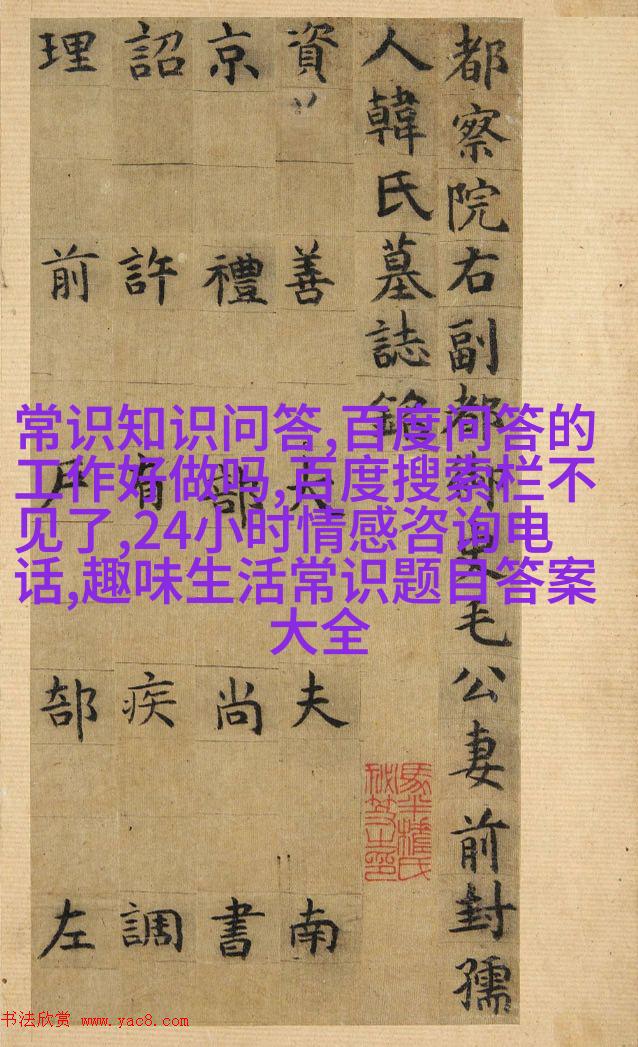 都察院右副都御史毛公妻前封孺
人韓氏墓誌銘
資善大夫南
京禮部尚書
詔許有疾調
理前戶部左
常识知识问答,百度问答的
工作好做吗,百度搜索栏不
见了,24小时情感咨询电
话,趣味生活常识题目答案
大全
书法欣赏 www.yac8.com